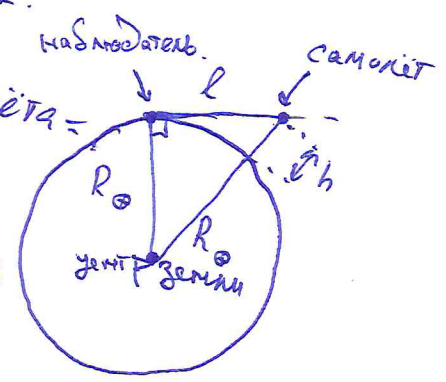 наблюдатель.
самолёт
l
ёта =
h
R⊕
R⊕
центр земли